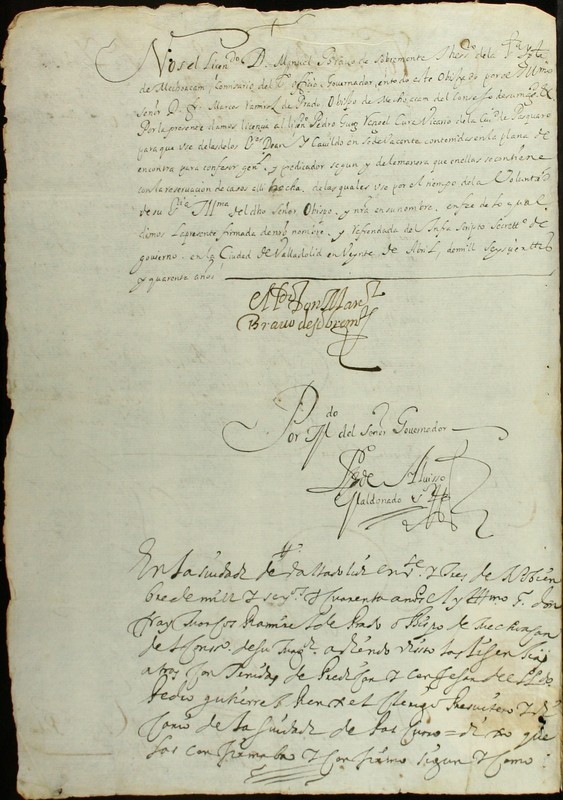 Nos el Licen.do D. Manuel Bravo de Sobremonte Thes.o de la S.ta Yg.a
de Mechoacam Comisario del S.to officio Governador, en todo este Obispado por el Ill.mo
señor D. fr. Marcos Ramirez de Prado Obispo de Mechoacam del Consejo de su mag.d &
Por la presente damos licencia al Licen.do Pedro Cura Vicario de la Ciu.d de Pasquaro
para que use de las de los S.res Dean y Cavildo en Sede Vacante contenidas en la plana de
en contra para confesor gen.l y predicador segun y de la manera que en ellas se contiene
con la reservacion de casos en ella hecha, de las quales use por el tiempo de la Voluntad
de su S.ria Ill.ma del dho Señor Obispo, y nra en su nombre, en fee de lo qual
dimos la presente firmada de nro nombre, y refrendada del Infra scripto Secret.o de
governo. en la Ciudad de Valladolid en Veynte de Abril, de mill y seyscientos
y quarenta años
El L.do Don Man.l
Bravo de Sobrem.te
Por M.do del Señor Governador
Maldonado S.rio
En la ciudad de Valladolid en y tres de Nobien
bre de mill y seys.os y quarenta años el Yll.mo S. don
fray Marcos Ramires de Prado obispo de Mechoacan
del Conso. de su Mag.d abiendo visto las lisensias
atras contenidas de Predicar y confesar del L.do
Pedro gutierres clerigo Presvitero y
de la ciudad de = dixo que
las confirmaba y confirmo segun y como